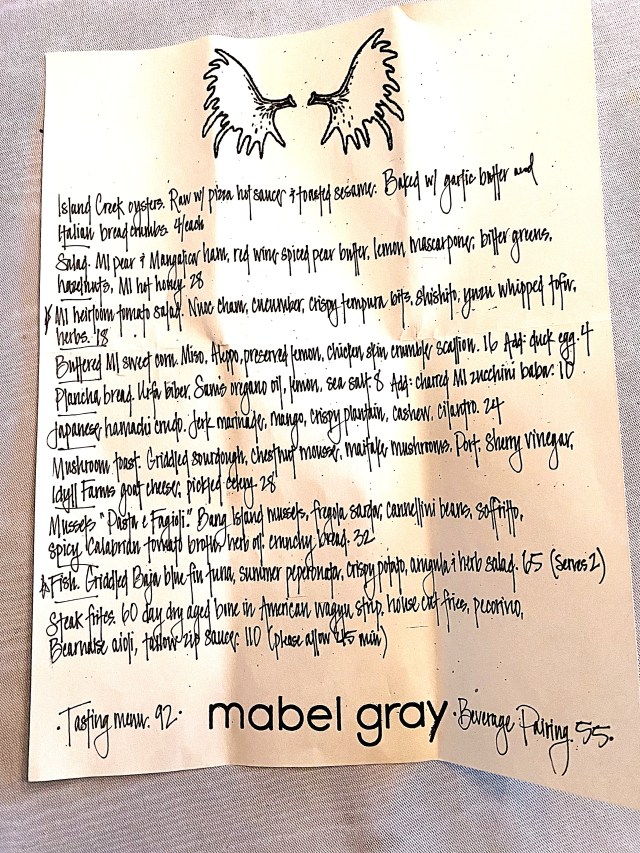 Island Creek oysters. Raw w/ pizza hot sauce & toasted sesame. Baked w/ garlic butter and
Italian breadcrumbs. 4/each
Salad. MI pear & Mangalica ham, red wine spiced pear butter, lemon mascarpone, bitter greens,
hazelnuts, MI hot honey. 28
MI heirloom tomato salad. Nuoc cham, cucumber, crispy tempura bits, shishito, yuzu whipped tofu,
herbs. 18
Buttered MI sweet corn. Miso, Aleppo, preserved lemon, chicken skin crumble, scallion. 16 Add: duck egg. 4
Plancha bread. Urfa biber, Sam's oregano oil, lemon, sea salt. 8 Add: charred MI zucchini baba. 10
Japanese hamachi crudo. Jerk marinade, mango, crispy plantain, cashew, cilantro. 24
Mushroom toast. Griddled sourdough, chestnut mousse, maitake mushrooms, Port, Sherry vinegar,
Idyll Farms goat cheese, pickled celery. 28
Mussels "Pasta e Fagioli." Bang Island mussels, fregola sarda, cannellini beans, soffritto,
spicy Calabrian tomato broth, herb oil, crunchy bread. 32
Fish. Griddled Baja blue fin tuna, summer peperonata, crispy potato, arugula & herb salad. 65 (serves 2)
Steak frites. 60 day dry aged bone in American wagyu strip, house cut fries, pecorino,
Bearnaise aioli, tallow zip sauce. 110 (please allow 45 min)
· Tasting menu. 92 · mabel gray · Beverage Pairing. 55 ·